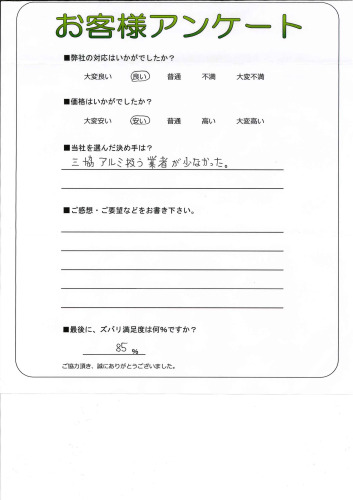 お客様アンケート
■弊社の対応はいかがでしたか?
大変良い 良い 普通 不満 大変不満
■価格はいかがでしたか?
大変安い 安い 普通 高い 大変高い
■当社を選んだ決め手は?
三協アルミ扱う業者が少なかった。
■ご感想・ご要望などをお書き下さい。
■最後に、ズバリ満足度は何%ですか?
85 %
ご協力頂き、誠にありがとうございました。